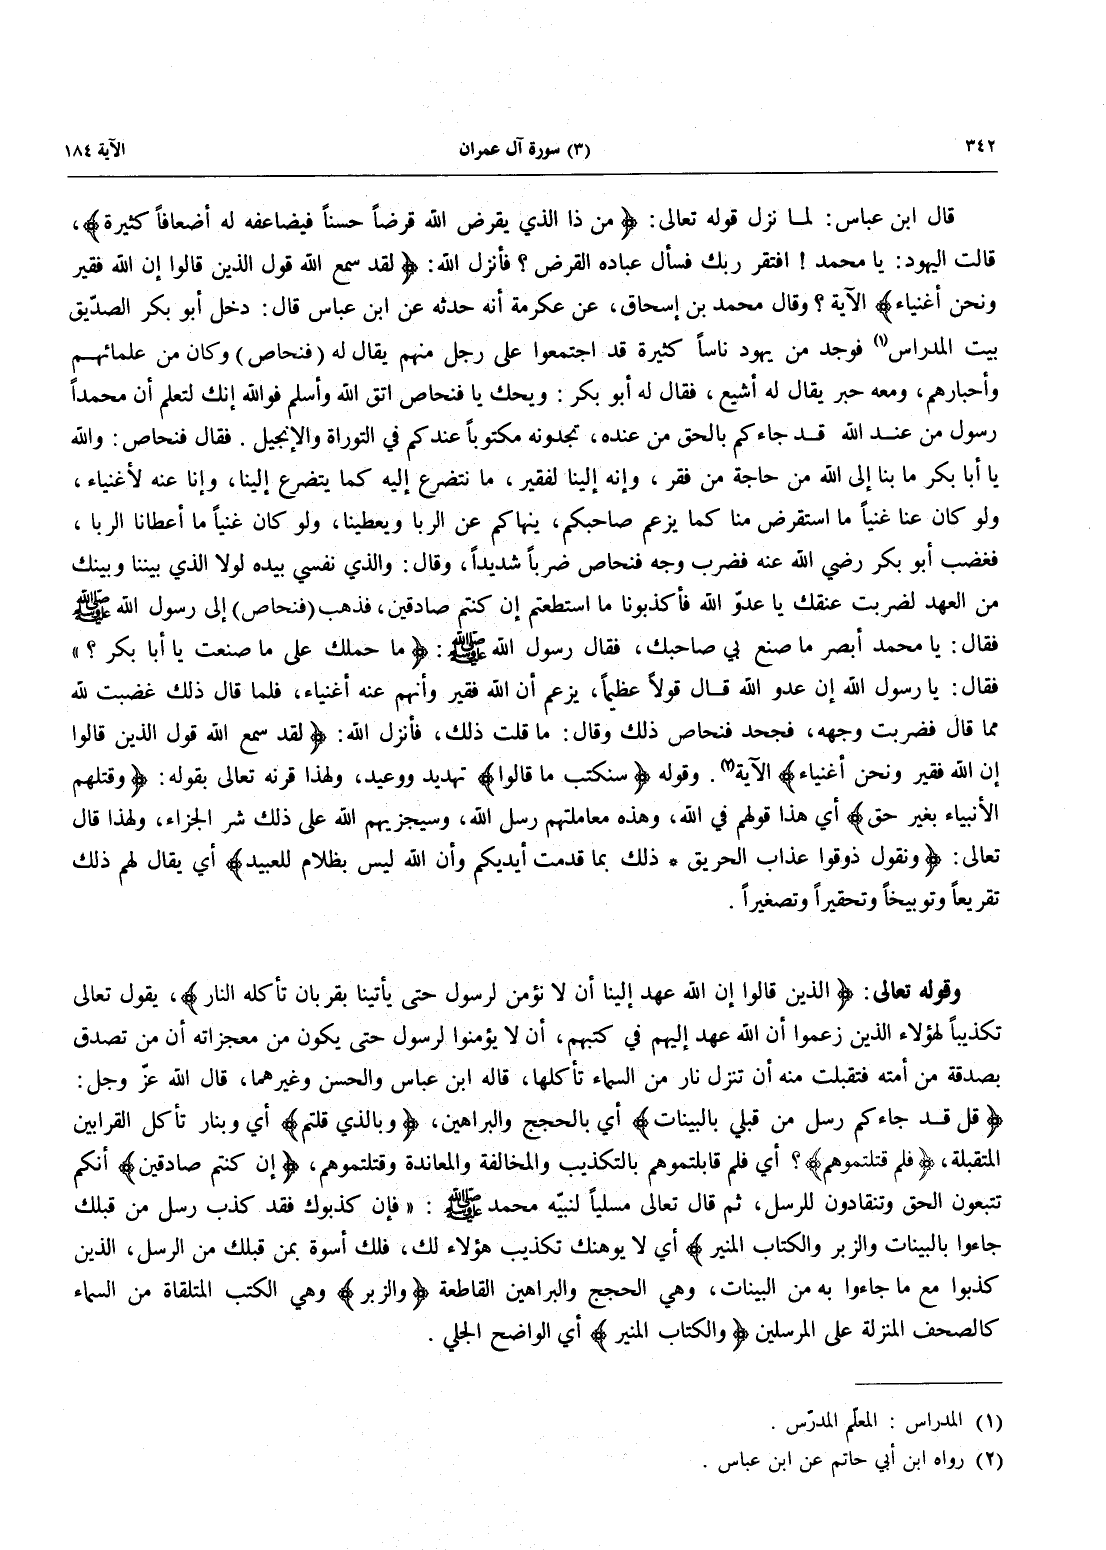 ٣٤٢ (٣) سورة آل عمران الآية ١٨٤
قال ابن عباس: لمـا نزل قوله تعالى: ﴿من ذا الذي يقرض الله قرضاً حسناً فيضاعفه له أضعافاً كثيرة﴾،
قالت اليهود: يا محمد ! افتقر ربك فسأل عباده القرض ؟ فأنزل الله: ﴿لقد سمع الله قول الذين قالوا إن الله فقير
ونحن أغنياء﴾ الآية ؟ وقال محمد بن إسحاق، عن عكرمة أنه حدثه عن ابن عباس قال: دخل أبو بكر الصدّيق
بيت المدراس(١) فوجد من يهود ناساً كثيرة قد اجتمعوا على رجل منهم يقال له (فنحاص) وكان من علمائهـم
وأحبارهم، ومعه حبر يقال له أشيع، فقال له أبو بكر: ويحك يا فنحاص اتق الله وأسلم فوالله إنك لتعلم أن محمداً
رسول من عنـد الله قـد جاءكم بالحق من عنده، تجدونه مكتوباً عندكم في التوراة والإنجيل. فقال فنحاص: والله
يا أبا بكر ما بنا إلى الله من حاجة من فقر، وإنه إلينا لفقير، ما نتضرع إليه كما يتضرع إلينا، وإنا عنه لأغنياء،
ولو كان عنا غنياً ما استقرض منا كما يزعم صاحبكم، ينهاكم عن الربا ويعطينا، ولو كان غنياً ما أعطانا الربا،
فغضب أبو بكر رضي الله عنه فضرب وجه فنحاص ضرباً شديداً، وقال: والذي نفسي بيده لولا الذي بيننا وبينك
من العهد لضربت عنقك يا عدوّ الله فأكذبونا ما استطعتم إن كنتم صادقين، فذهب (فنحاص) إلى رسول الله ﷺ
فقال: يا محمد أبصر ما صنع بي صاحبك، فقال رسول الله ﷺ: ﴿ما حملك على ما صنعت يا أبا بكر ؟»
فقال: يا رسول الله إن عدو الله قـال قولاً عظيماً، يزعم أن الله فقير وأنهم عنه أغنياء، فلما قال ذلك غضبت لله
مما قال فضربت وجهه، فجحد فنحاص ذلك وقال: ما قلت ذلك، فأنزل الله: ﴿لقد سمع الله قول الذين قالوا
إن الله فقير ونحن أغنياء﴾ الآية(٢). وقوله ﴿سنكتب ما قالوا﴾ تهديد ووعيد، ولهذا قرنه تعالى بقوله: ﴿وقتلهم
الأنبياء بغير حق﴾ أي هذا قولهم في الله، وهذه معاملتهم رسل الله، وسيجزيهم الله على ذلك شر الجزاء، ولهذا قال
تعالى: ﴿ونقول ذوقوا عذاب الحريق * ذلك بما قدمت أيديكم وأن الله ليس بظلام للعبيد﴾ أي يقال لهم ذلك
تقريعاً وتوبيخاً وتحقيراً وتصغيراً.
وقوله تعالى: ﴿الذين قالوا إن الله عهد إلينا أن لا نؤمن لرسول حتى يأتينا بقربان تأكله النار﴾، يقول تعالى
تكذيباً لهؤلاء الذين زعموا أن الله عهد إليهم في كتبهم، أن لا يؤمنوا لرسول حتى يكون من معجزاته أن من تصدق
بصدقة من أمته فتقبلت منه أن تنزل نار من السماء تأكلها، قاله ابن عباس والحسن وغيرهما، قال الله عزّ وجل:
﴿قل قـد جاءكم رسل من قبلي بالبينات﴾ أي بالحجج والبراهين، ﴿وبالذي قلتم﴾ أي وبنار تأكل القرابين
المتقبلة، ﴿فلم قتلتموهم﴾ ؟ أي فلم قابلتموهم بالتكذيب والمخالفة والمعاندة وقتلتموهم، ﴿إن كنتم صادقين﴾ أنكم
تتبعون الحق وتنقادون للرسل، ثم قال تعالى مسلياً لنبيّه محمد ﷺ: «فإن كذبوك فقد كذب رسل من قبلك
جاءوا بالبينات والزبر والكتاب المنير﴾ أي لا يوهنك تكذيب هؤلاء لك، فلك أسوة بمن قبلك من الرسل، الذين
كذبوا مع ما جاءوا به من البينات، وهي الحجج والبراهين القاطعة ﴿والزبر﴾ وهي الكتب المتلقاة من السماء
كالصحف المنزلة على المرسلين ﴿والكتاب المنير﴾ أي الواضح الجلي.
(١) المدراس : المعلّم المدرّس.
(٢) رواه ابن أبي حاتم عن ابن عباس.